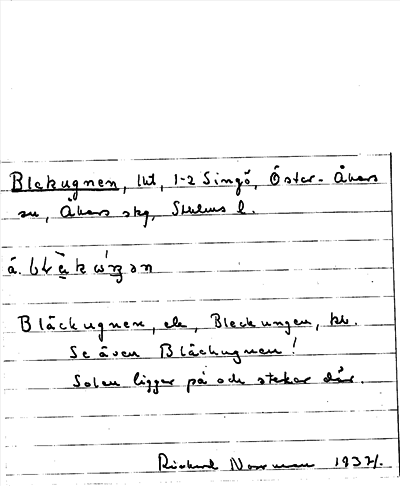 Blekugnen, lht, 1-2 Singö, Öster-Åkers
sn, Åkers skg, Sthlms l.
Bläckugnen, ek, Bleckungen, kb.
Se även Bläckugnen!
Solen ligger på och steker där.
Rickard Norrman 1932.